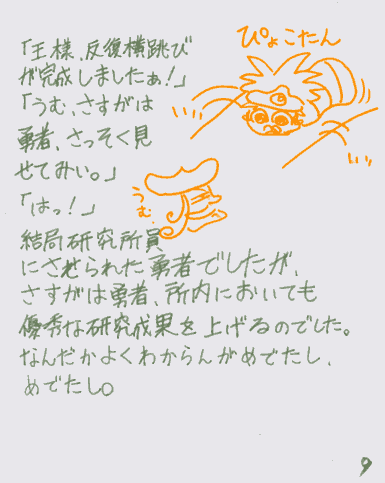 「王様、反復横跳び
が完成しましたぁ!」
「うむ、さすがは
勇者、さっそく見
せてみい。」
「はっ!」
結局研究所員
にさせられた勇者でしたが、
さすがは勇者、所内においても
優秀な研究成果を上げるのでした。
なんだかよくわからんがめでたし、
めでたし。
ぴょこたん
いい
いい
うむ。
9